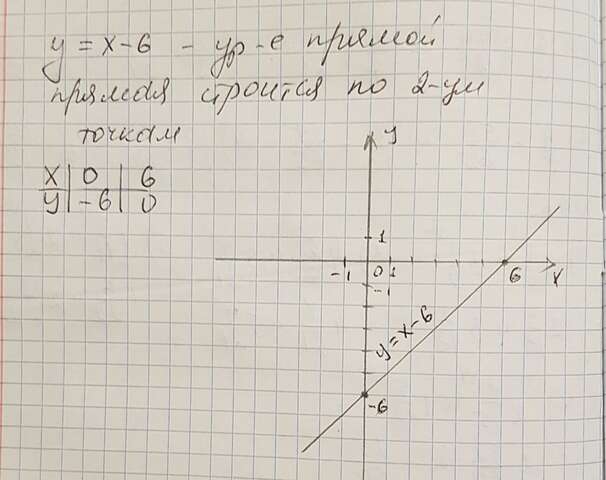 y = x - 6 - ур-е прямой
прямая строится по 2-ум
точкам
x | 0 | 6
y | -6 | 0
y
1
-1 0 1 6 x
-1
y = x - 6
-6